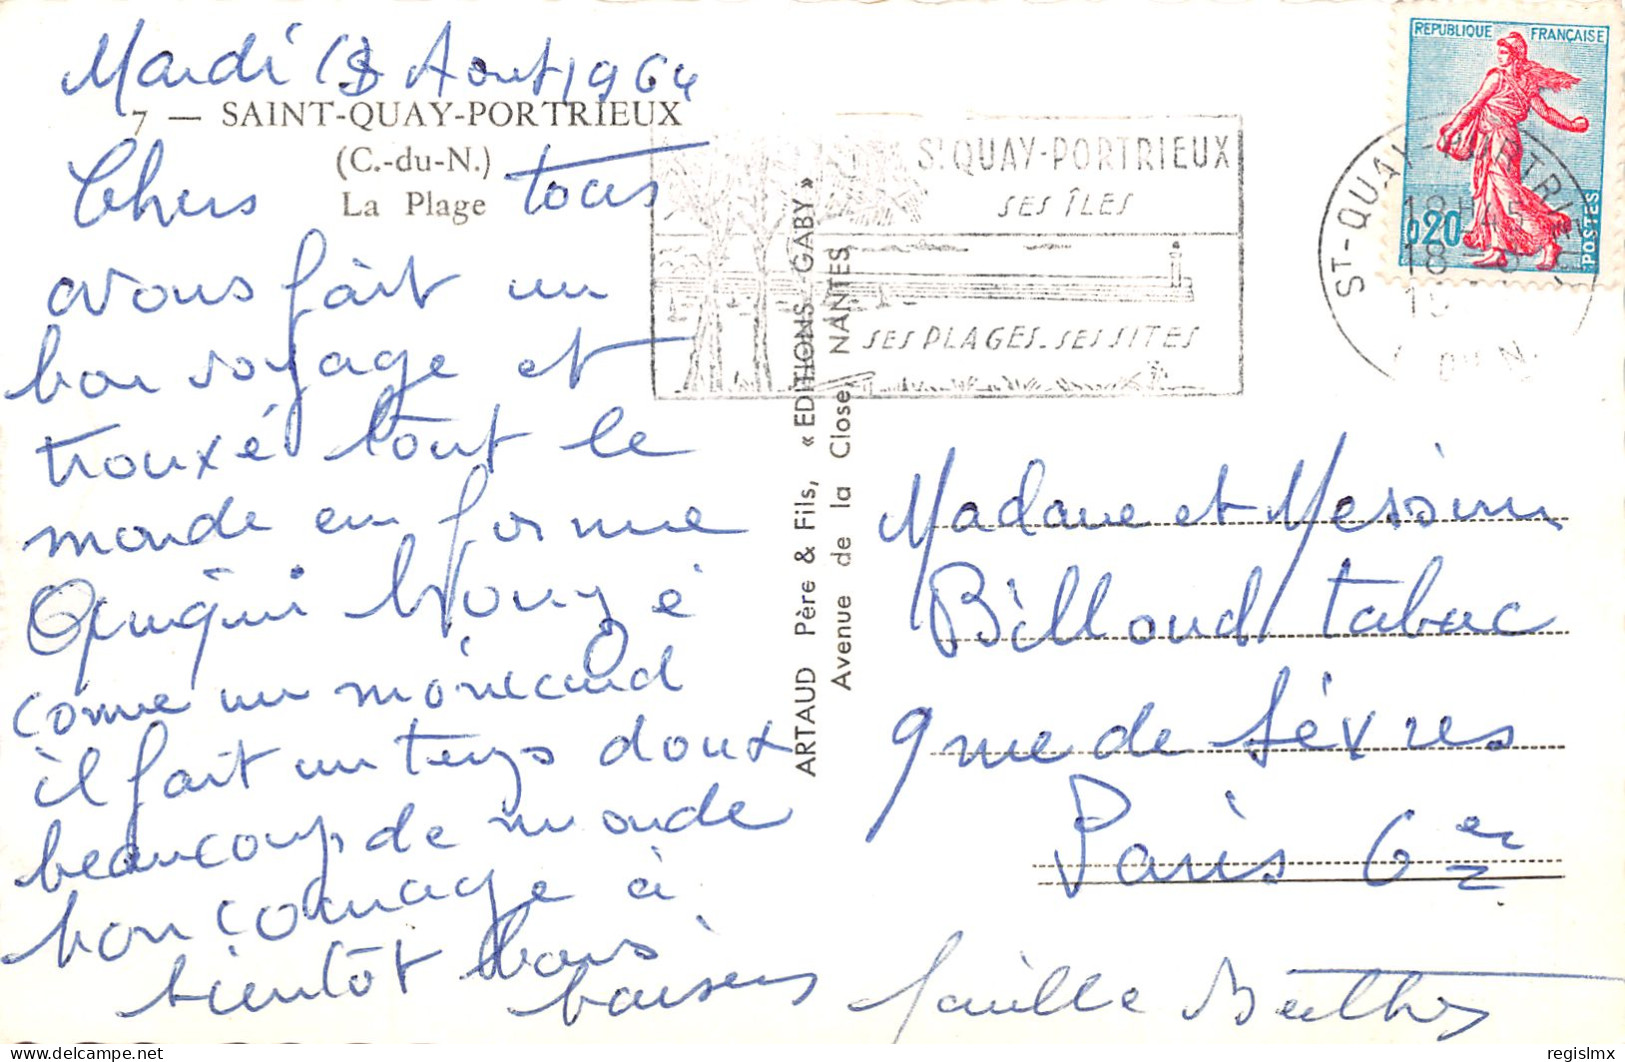 Mardi 18 Aout 1964
7 — SAINT-QUAY-PORTRIEUX
(C.-du-N.)
La Plage
Chers tous
avons fait un
bon voyage et
trouvé tout le
monde en forme
bronzé
comme un moricaud
il fait un temps doux
beaucoup de monde
bon courage à
bientôt bons
baisers
famille
ARTAUD Père & Fils, «EDITIONS GABY»
Avenue de la Close, NANTES
ST QUAY-PORTRIEUX
SES ÎLES
SES PLAGES-SES SITES
ST-QUAY-PORTRIEUX
18H45
18-8
19
C. DU N.
REPUBLIQUE FRANÇAISE
0,20
POSTES
Madame et Messieur
Billoud tabac
9 rue de Sèvres
Paris 6er
delcampe.net
regislmx